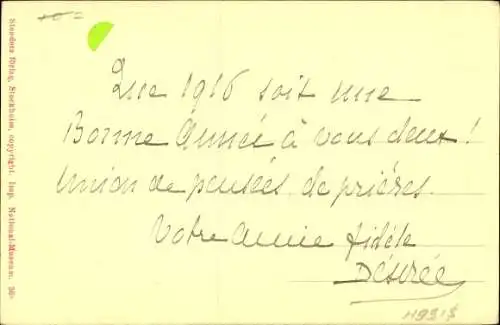 Que 1916 soit une
Bonne Année à vous deux!
Union de pensées, de prières.
Votre amie fidèle
Désirée
Stendets förlag, Stockholm, copyright. Imp. National-Museum.